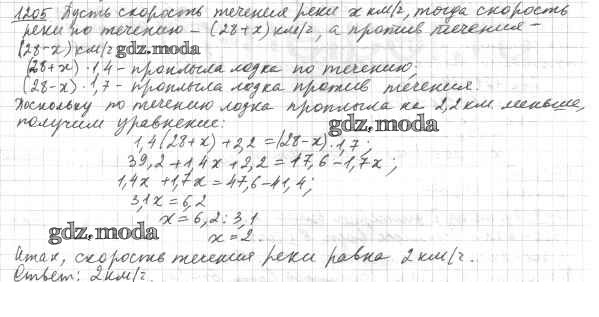 1205 Пусть скорость течения реки x км/ч, тогда скорость
реки по течению – (28+x) км/ч, а против течения –
(28-x) км/ч gdz.moda
(28+x)·1,4 – проплыла лодка по течению;
(28-x)·1,7 – проплыла лодка против течения.
Поскольку по течению лодка проплыла на 2,2 км меньше,
получим уравнение:
gdz.moda
1,4(28+x)+2,2=(28-x)·1,7;
39,2+1,4x+2,2=47,6-1,7x;
1,4x+1,7x=47,6-41,4;
3,1x=6,2
x=6,2:3,1
gdz.moda
x=2.
Итак, скорость течения реки равна 2 км/ч.
Ответ: 2 км/ч.